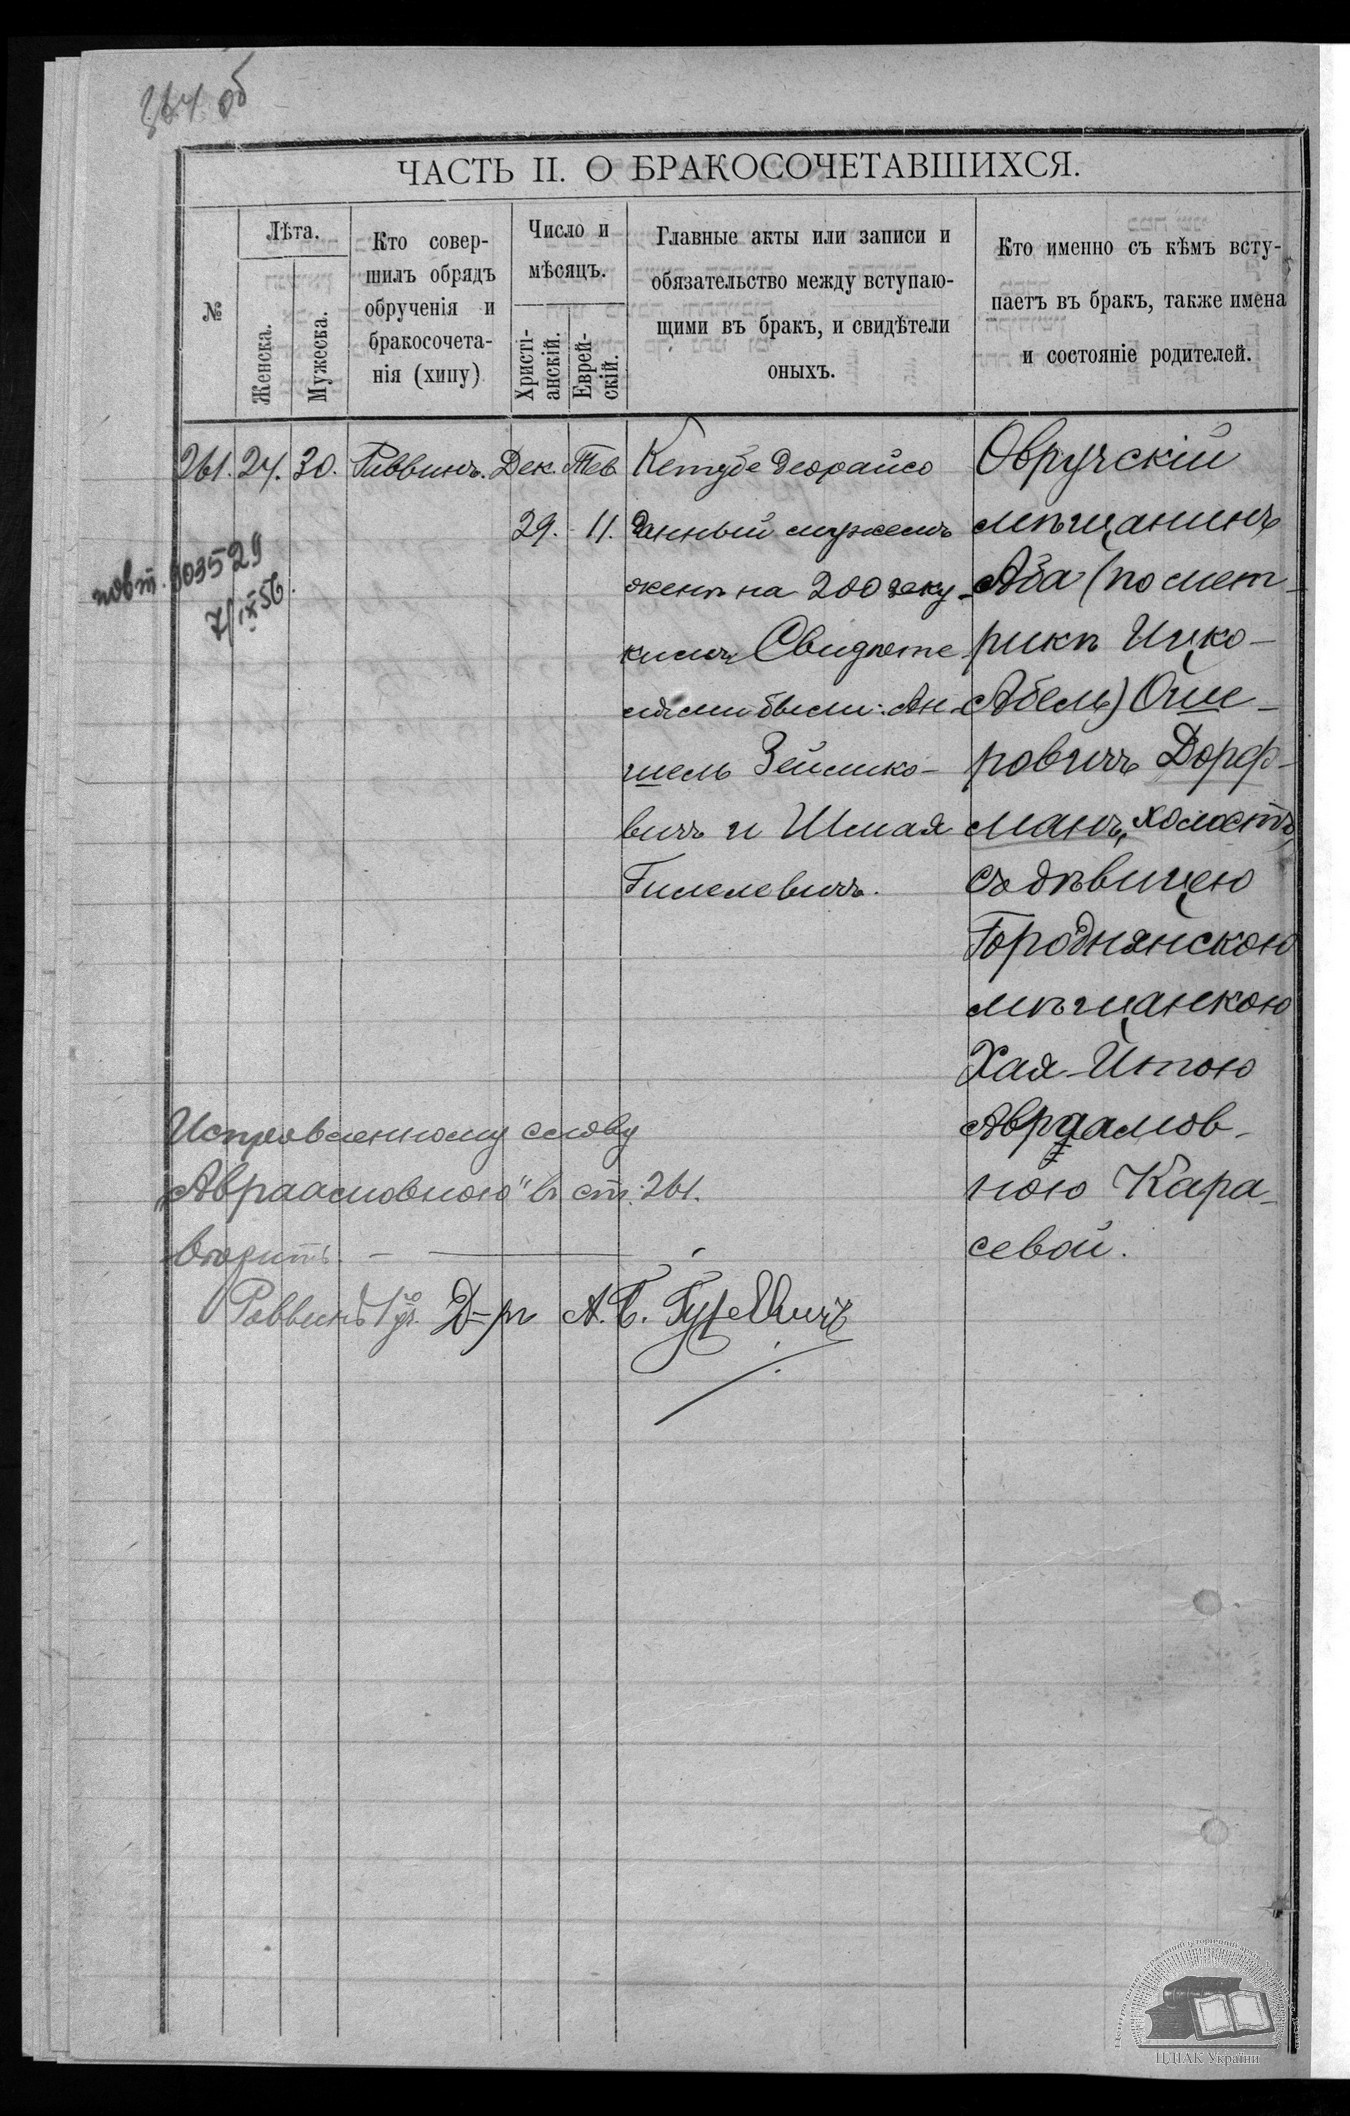 об
ЧАСТЬ II. О БРАКОСОЧЕТАВШИХСЯ.
№
Лѣта.
Женска.
Мужеска.
Кто совер-
шилъ обрядъ
обрученія и
бракосочета-
нія (хипу)
Число и
мѣсяцъ.
Христі-
анскій.
Еврей-
скій.
Главные акты или записи и
обязательство между вступаю-
щими въ бракъ, и свидѣтели
оныхъ.
Кто именно съ кѣмъ всту-
паетъ въ бракъ, также имена
и состояніе родителей.
261. 24. 30. Раввинъ. Дек. Тев
29. 11.
Кетубе деорайсо
данный мужемъ
женѣ на 200 зеку
кимъ Свидѣте
лями были: Ан-
шель Зелико-
вичъ и Шмая
Гилелевичъ.
Овручскій
мѣщанинъ
Аба (по мет-
рикѣ Ицко-
Абель) Оше-
ровичъ Дорф-
манъ, холостъ,
съ дѣвицею
Городнянскою
мѣщанкою
Хая-Итою
Авраамов-
ною Кара-
севой.
повт. 903529
7/IX 56
Исправленному слову
„Авраамовною" в ст. 261.
вѣрить.
Раввинъ Д-ръ А. Б. Гуревичъ
ЦДІАК України